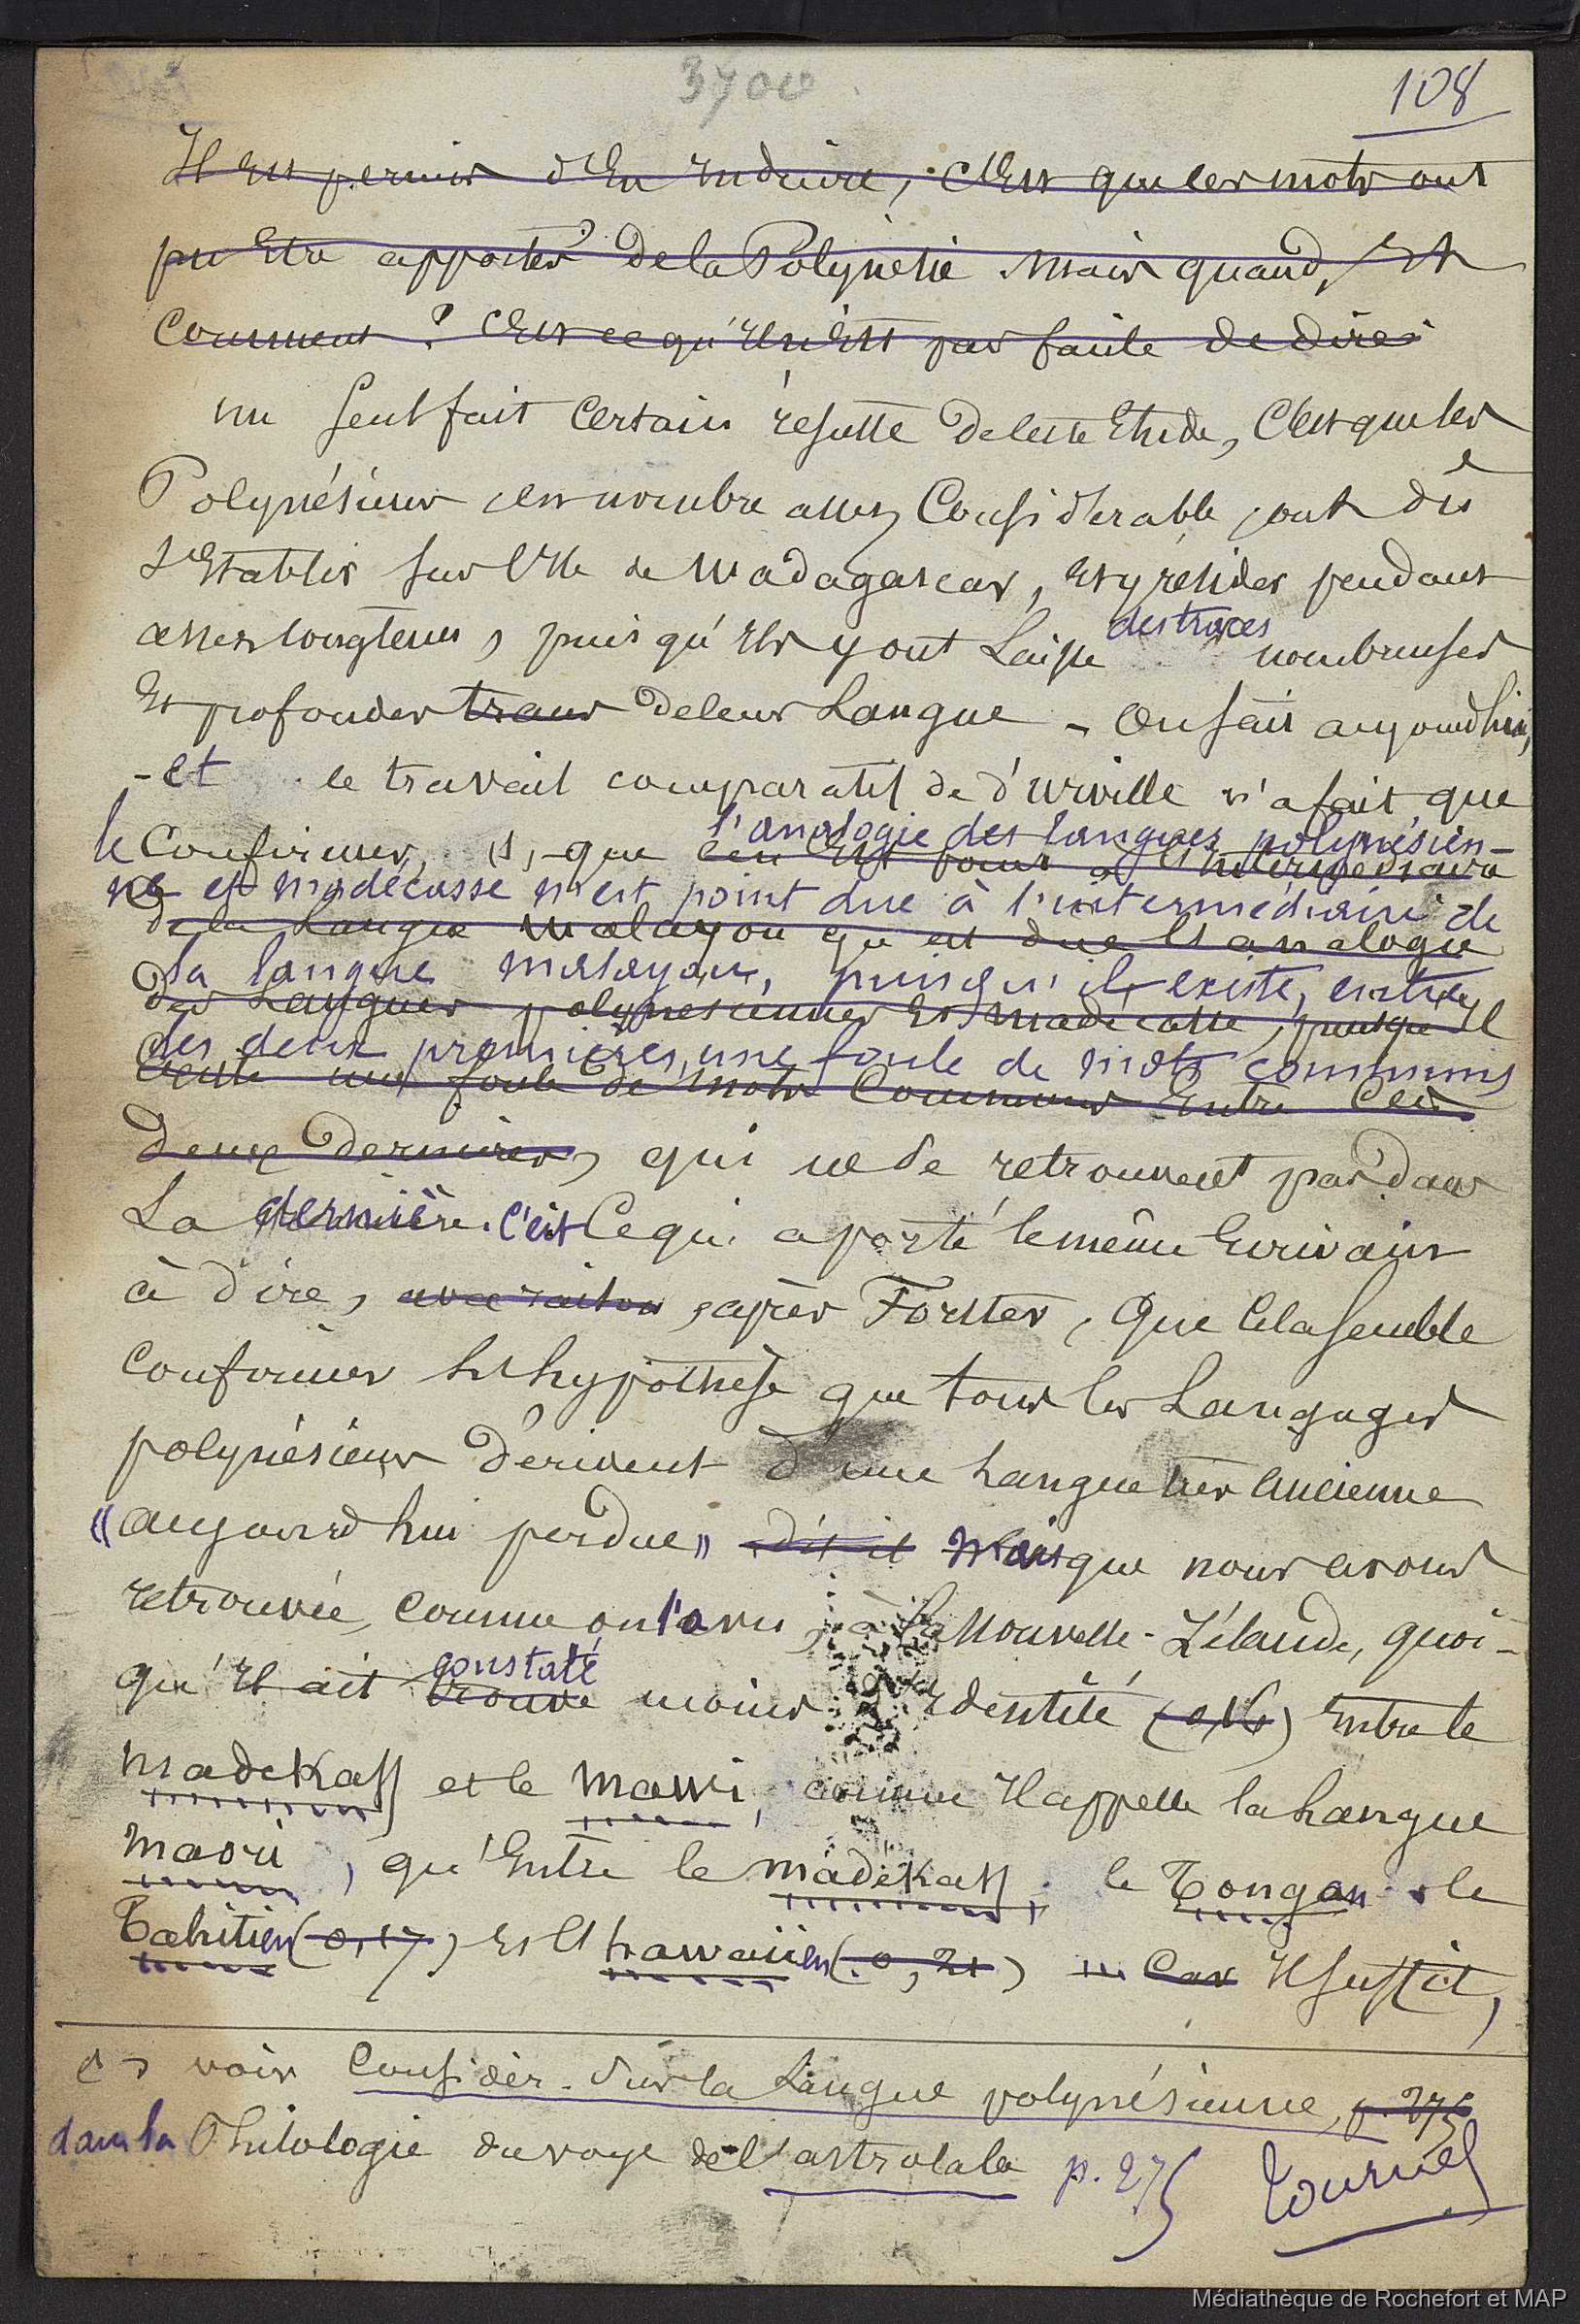 3700
108
Il est permis d'en induire, c'est que les mots ont
pu être apportés de la Polynésie. Mais quand, et
comment ? C'est ce qu'il n'est pas facile de dire.
un seul fait certain résulte de cette étude, c'est que les
Polynésiens en nombre assez considérable, ont dû
s'établir sur l'Ile de Madagascar, et y résider pendant
assez longtems, puisqu'ils y ont laissé des traces nombreuses
et profondes traces de leur Langue - On sait aujourd'hui,
- et le travail comparatif de d'Urville n'a fait que
le confirmer, (1) - que l'analogie des langues polynésien-
ce n'est point à l'intermédiaire
ne et madécasse n'est point due à l'intermédiaire de
de la Langue malayou qu'est due l'analogie
la langue malayou, puisqu'il existe, entre
des Langues polynésiennes et madécasse, puisqu'il
les deux premières, une foule de mots communs
existe une foule de mots communs entre ces
deux dernières, qui ne se retrouvent pas dans
La dernière. c'est Ce qui a porté le même Ecrivain
à dire, avec raison, après Forster, que cela semble
confirmer l'hypothèse que tous les Langages
polynésiens dérivent d'une Langue très ancienne
« aujourd'hui perdue » dit-il Mais que nous avons
retrouvée, comme on l'a vu, à la Nouvelle-Zélande, quoi-
qu'il ait trouvé constaté moins d'identité (0,16) entre le
madekass et le Mawi, comme il appelle la Langue
maori, qu'entre le madekass, le Tongan, le
Tahitien (0,17) et l'hawaiien (0,21) Car Il suffit,
(1) voir Considér. sur la Langue polynésienne, p. 275
dans la Philologie du voye de l'astrolabe p. 275 Tournez
Médiathèque de Rochefort et MAP